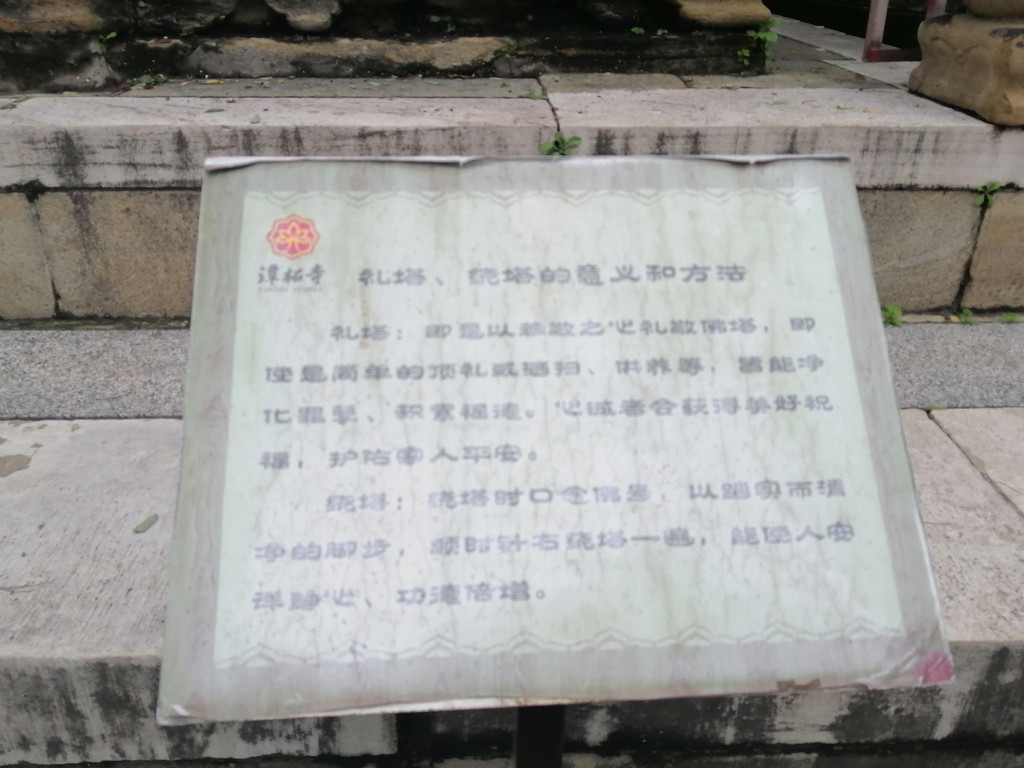 潭柘寺
礼塔、绕塔的意义和方法
礼塔：即是以恭敬之心礼敬佛塔，即
使是简单的顶礼或洒扫、供养等，皆能净
化罪孽、积累福德。心诚者会获得美好祝
福，护佑家人平安。
绕塔：绕塔时口念佛号，以踏实而清
净的脚步，顺时针右绕塔一遍，能使人安
详静心、功德倍增。